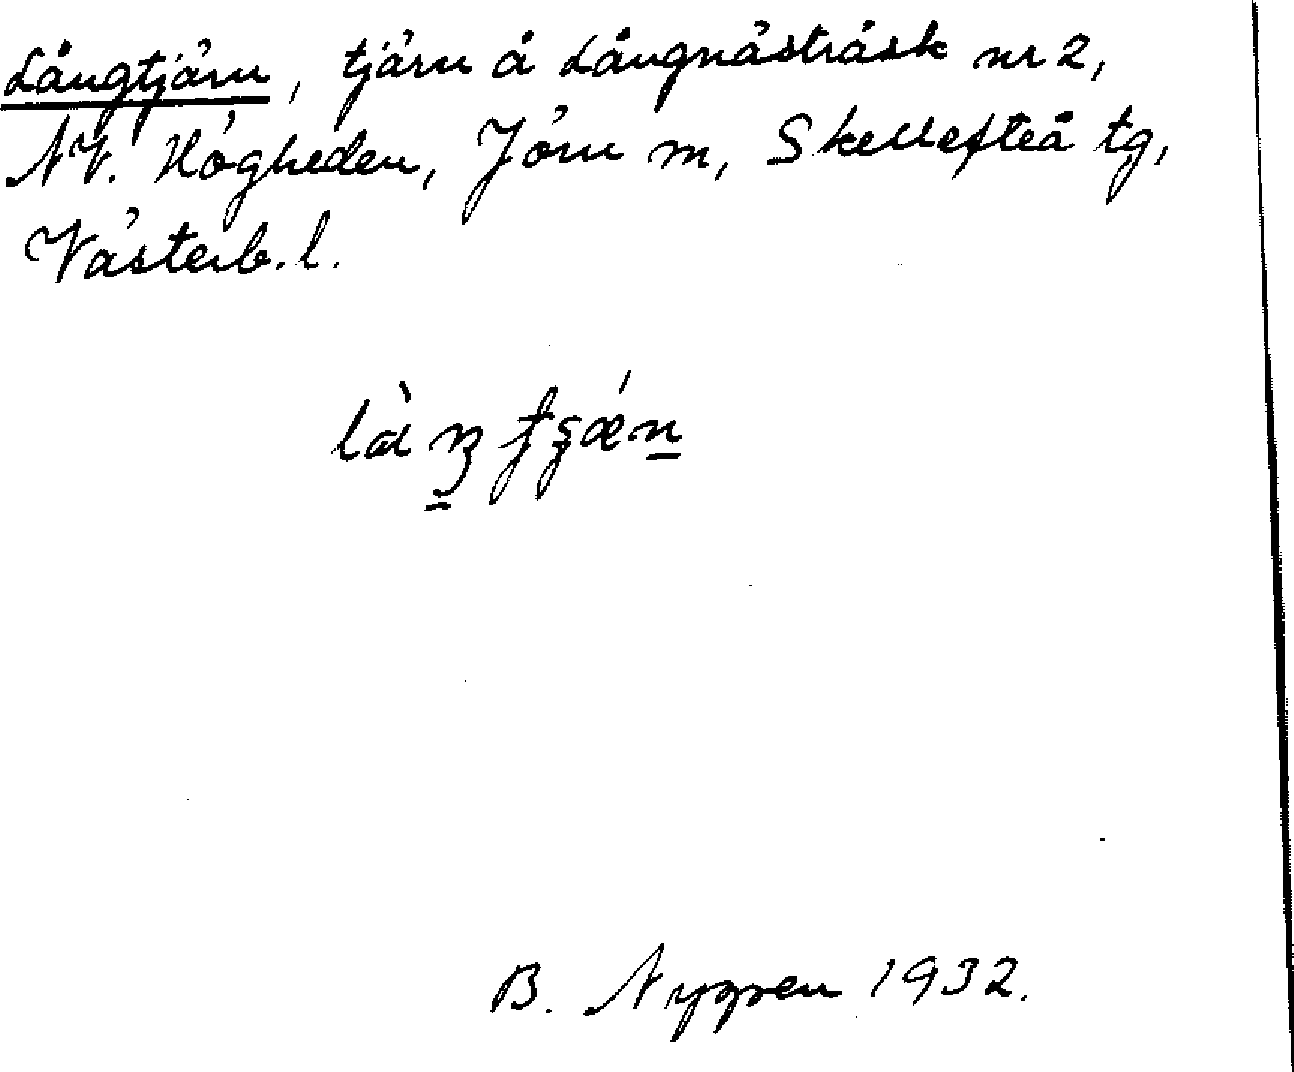 Långtjärn, tjärn å Långnästräsk nr 2,
NV. Högheden, Jörn sn, Skellefteå tg,
Västerb. l.
B. Nygren 1932.